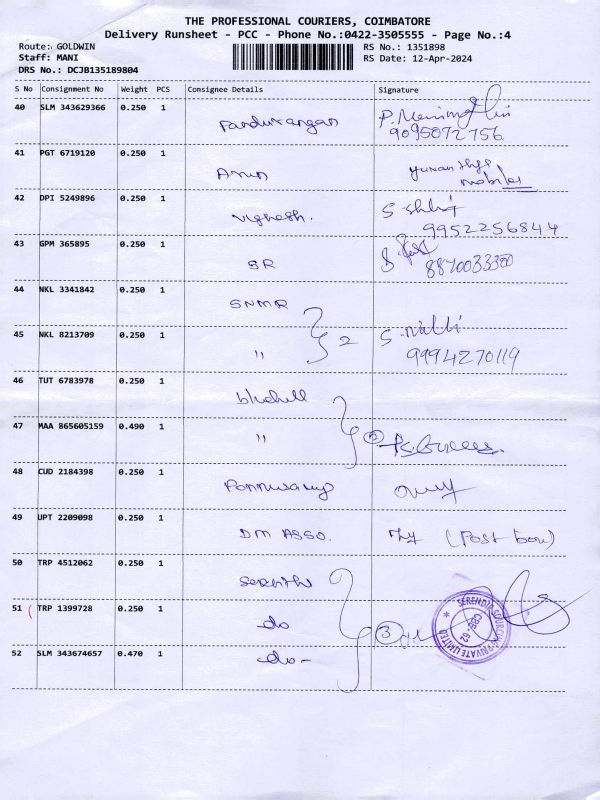 THE PROFESSIONAL COURIERS, COIMBATORE
Delivery Runsheet - PCC - Phone No.:0422-3505555 - Page No.:4
Route: GOLDWIN RS No.: 1351898
Staff: MANI RS Date: 12-Apr-2024
DRS No.: DCJB135189804
S No Consignment No Weight PCS Consignee Details Signature
40 SLM 343629366 0.250 1 Pandurangan
9095072756
41 PGT 6719120 0.250 1 Arun
mobiles
42 DPI 5249896 0.250 1 Vighesh.
9952256844
43 GPM 365895 0.250 1 SR
44 NKL 3341842 0.250 1 SNMR
2
45 NKL 8213709 0.250 1 " 9994270119
46 TUT 6783978 0.250 1
47 MAA 865605159 0.490 1 "
48 CUD 2184398 0.250 1 Ponnusamy
49 UPT 2209098 0.250 1 DM ASSO. (Post box)
50 TRP 4512062 0.250 1
51 TRP 1399728 0.250 1 do 3
52 SLM 343674657 0.470 1 -do-
PRIVATE LIMITED